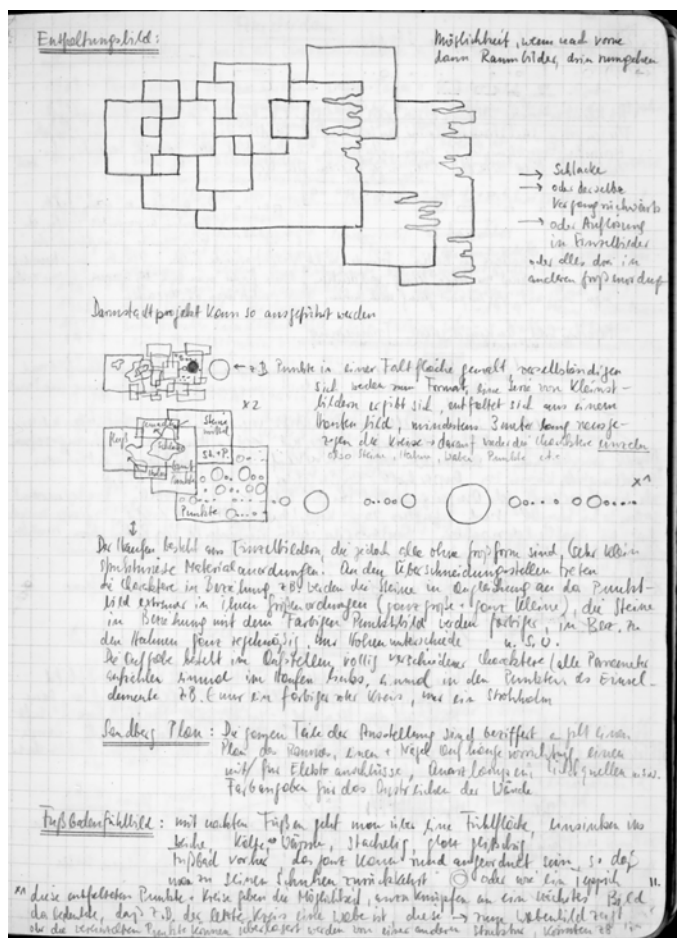 Entfaltungsbild:
Möglichkeit, wenn nach vorne
dann Raumbilder, drin rumgehen
→ Schlacke
→ oder derselbe
Vorgang rückwärts
→ oder Auflösung
in Einzelbilder
oder alles das in
anderen Größenordng
Darmstadtprojekt kann so ausgeführt werden
← z.B. Punkte in einer Faltfläche gemalt verselbständigen
sich, werden zum Format, eine Serie von Kleinst-
bildern ergibt sich, entfaltet sich aus einem
bild, mindestens 3 meter lang
die Kreise → darauf wieder die Charaktere einzeln
also Steine, Halme, Waben Punkte etc.
x2
Steine
Punkte
x^
Der Haufen besteht aus Einzelbildern, die jedoch alle ohne Großform sind, (sehr klein
strukturierte Materialanordnungen. An den Überschneidungsstellen treten
die Charaktere in Beziehung z.B. werden die Steine in Angleichung an das Punkt-
bild extremer in ihren Größenordnungen (ganz große + ganz kleine), die Steine
in Beziehung mit dem Farbigen Punktbild werden farbiger, in Bez. zu
den Halmen ganz regelmäßig, nur Höhenunterschiede u. s. w.
Die Aufgabe besteht im Aufstellen völlig verschiedener Charaktere (alle Parameter
einmal im Haufen und einmal in den Punkten als Einzel-
elemente z.B. (nur ein farbiger roter Kreis, nur ein Strohhalm
Sandberg Plan: Die ganzen Teile der Ausstellung sind beziffert es gibt einen
Plan der Räume, einen + Nägel Aufhängevorrichtung, einen
mit/für Elektroanschlüsse, Lichtquellen usw.
Farbangaben für das Anstreichen der Wände
Fußbodenfühlbild: mit nackten Füßen geht man über eine Fühlfläche, einsinken ins
weiche, Kälte, Wärme, Stachelig, glatt glitschig
Fußbad vorher das ganz kann rund angeordnet sein, so daß
man zu seinen Schuhen zurückkehrt oder wie ein Teppich
11.
x^ diese entfalteten Punkte + Kreise geben die Möglichkeit, anzuknüpfen an ein nächstes Bild
das bedeutet, daß z.B. der letzte Kreis eine Wabe ist, diese → zum Wabenbild
oder die vereinzelten Punkte können überlagert werden von einer anderen Struktur, könnten z.B.